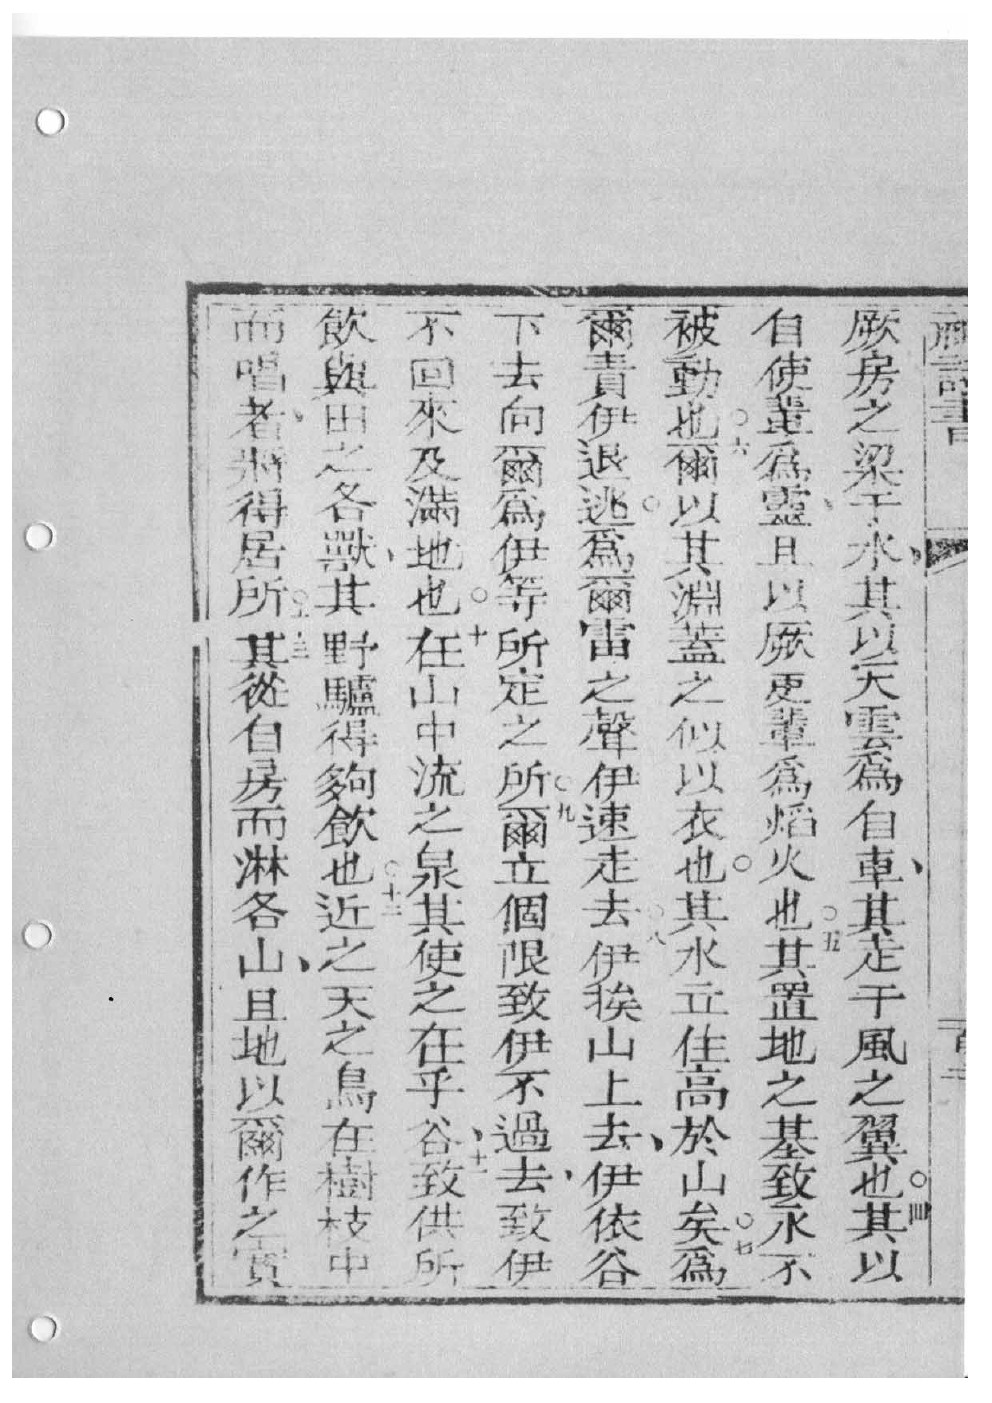 厥房之梁于水、其以天雲爲自車、其走于風之翼也○四其以
自使輩爲靈、且以厥吏輩爲焰火也○五其置地之基致永不
被動也○六爾以其淵蓋之似以衣也○其水立住高於山矣○七爲
爾責伊退逃○爲爾雷之聲伊速走去○八伊挨山上去、伊依谷
下去向爾爲伊等所定之所○九爾立個限致伊不過去、致伊
不回來及滿地也○十在山中流之泉其使之在乎谷、十一致供所
飲與田之各獸、其野驢得夠飲也○十二近之天之鳥在樹枝中
而唱者、將得居所○十三其從自房而淋各山、且地以爾作之實